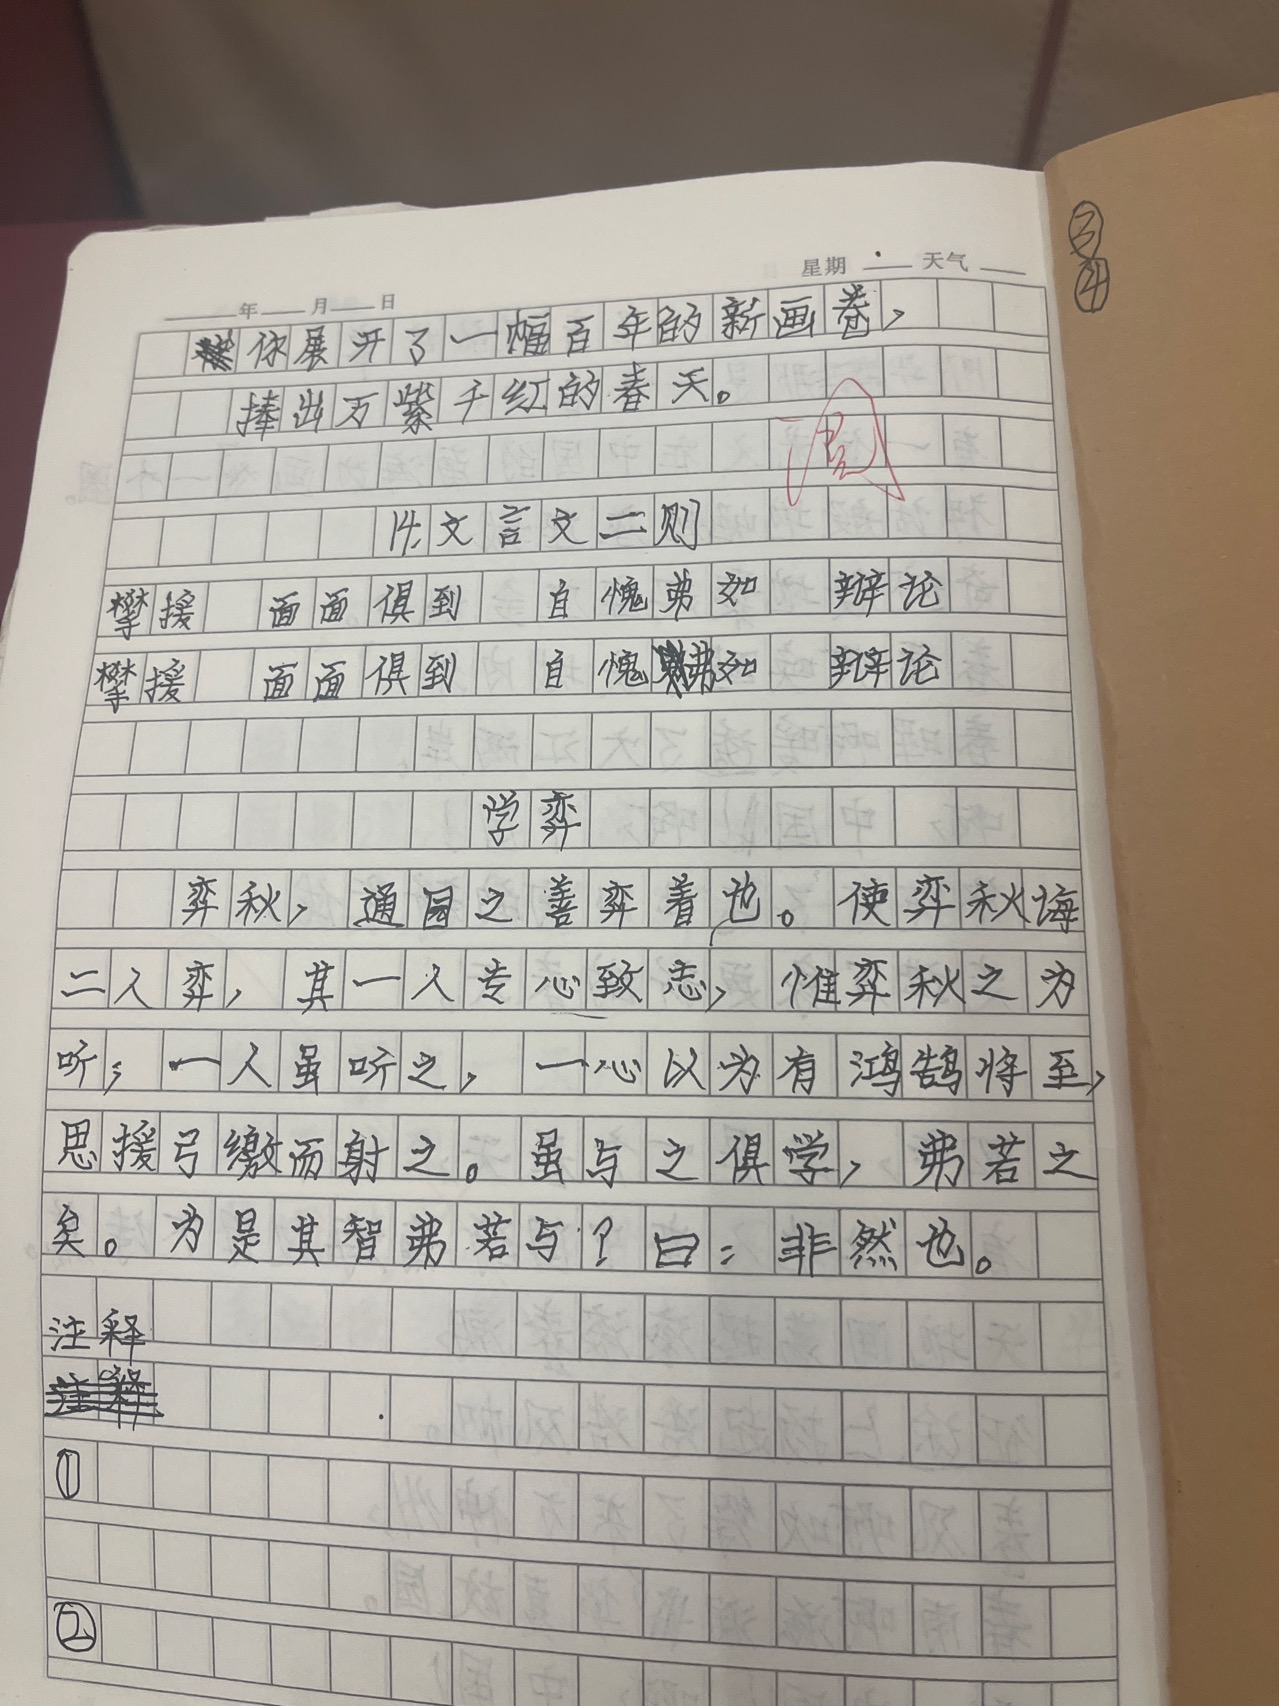 ③
④
年 月 日 星期 天气
你展开了一幅百年的新画卷,
捧出万紫千红的春天。
14.文言文二则
攀援 面面俱到 自愧弗如 辩论
攀援 面面俱到 自愧弗如 辩论
学弈
弈秋,通国之善弈着也。使弈秋诲
二人弈,其一人专心致志,惟弈秋之为
听;一人虽听之,一心以为有鸿鹄将至,
思援弓缴而射之。虽与之俱学,弗若之
矣。为是其智弗若与?曰:非然也。
注释
注释
①
②